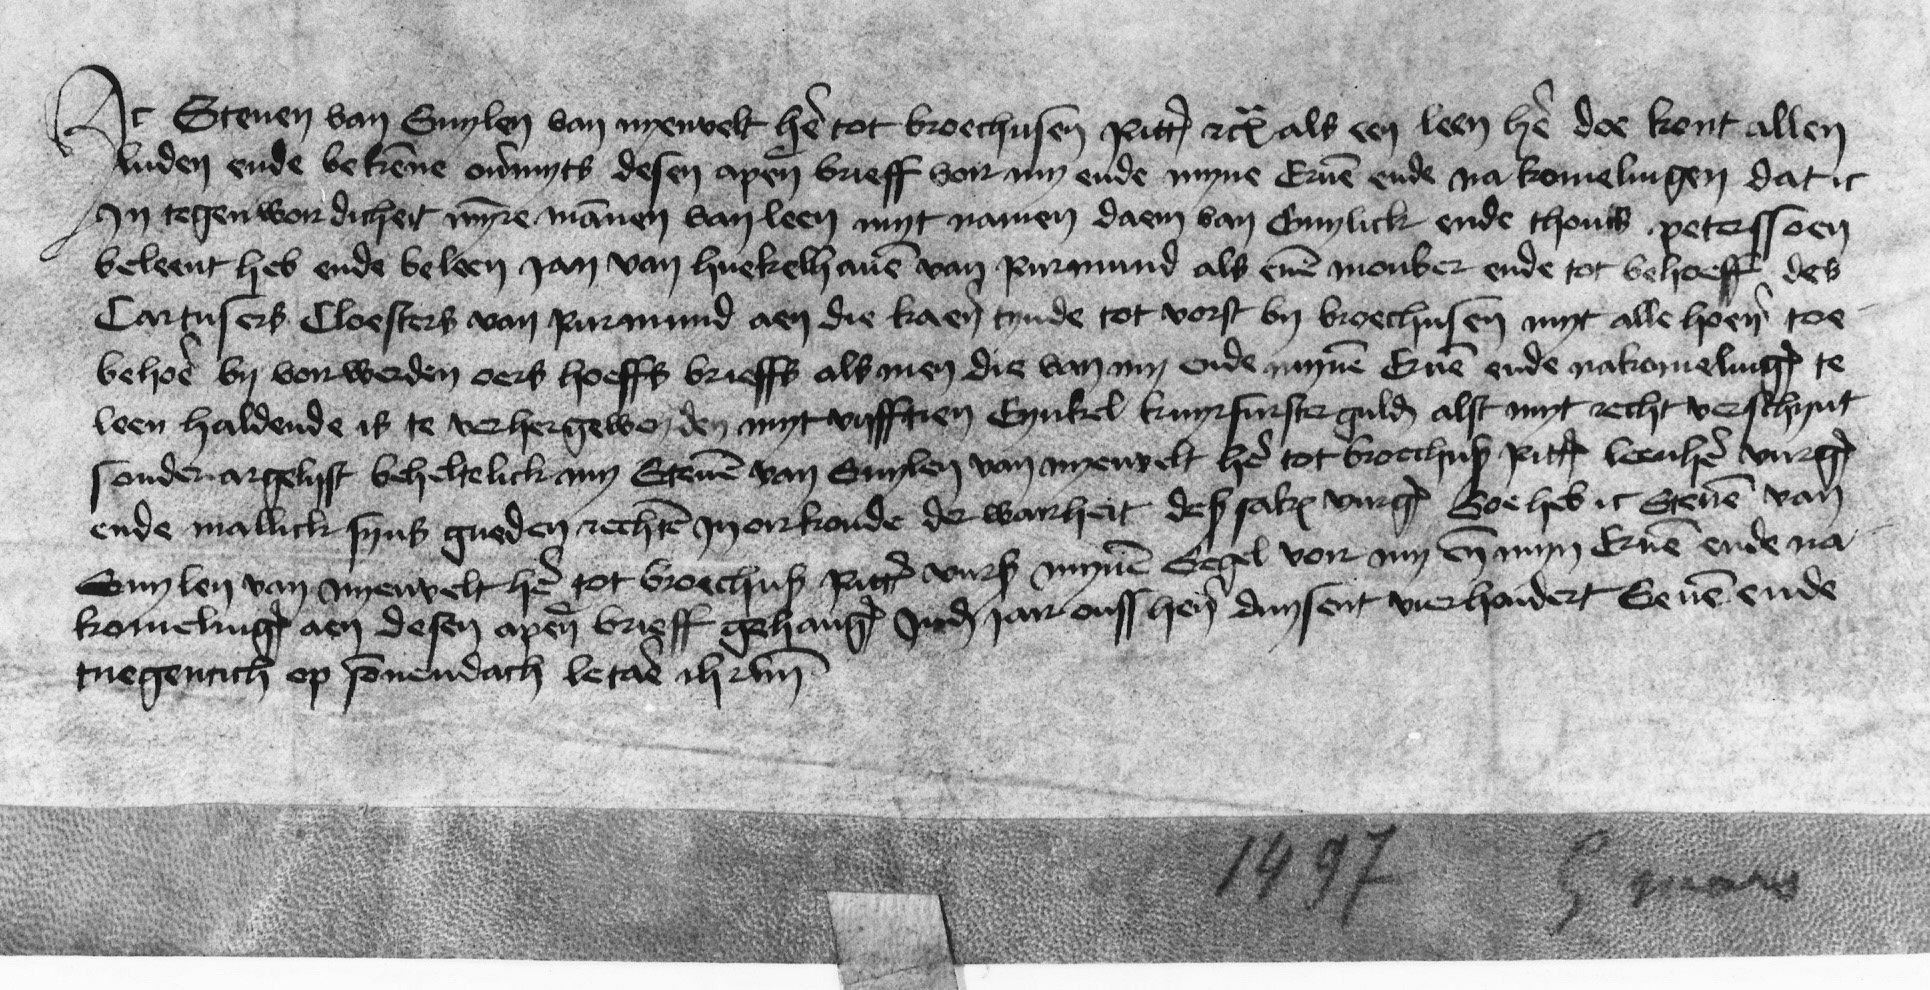 Ic Steuen van Suylen van nyenvelt he͂r tot broechusen Ritt͛ etc͛ als een leen he͂r doe kont allen
luden ende beke͂ne ou͛mits desen apen͛ brieff voir my ende myne Erue͂ ende nakomelingen dat ic
In tegenwordicheit my͂re ma͂nen van leen myt namen daem van Gruylick ende thonis peterssoen
beleent heb ende beleen Jan van hukelhaue͂ van Rurmund als eue͂ monber ende tot behoeff des
Cartusers Cloesters van Rurmund aen die kaen͛ tynde tot vorst by broechusen myt alle hoen͛ toe
behoe͛ by vorwerden oers hoeffs brieffs als men die van my ende myne͂ Erue͂ ende nakomeling͛ te
leen haldende is te verhergewenden myt vyfftien Enkel kuyrfurster guld͛ alst myt recht verschynt
sonder argelyst beheltelick my Steue͂ van Suylen van nyenvelt he͂r tot broechuß Ritt͛ leenhe͂r vurg͛
ende mallick syns gueden rechte͂ In orkonde der warheit deß sak͛ vurg͛ Soe heb ic Steue͂ van
Suylen van nyenvelt he͂r tot broechuß Ritt͛ vurß myne͂ Segel voir my en͂ myn Erue͂ ende na
komeling͛ aen desen apen͛ brieff gehang͛ Ind͛ jair onss hen͛ duysent vierhondert Seue͂ ende
tnegentich op so͂nendach letare ih͂rlm͂
1497
5 mars